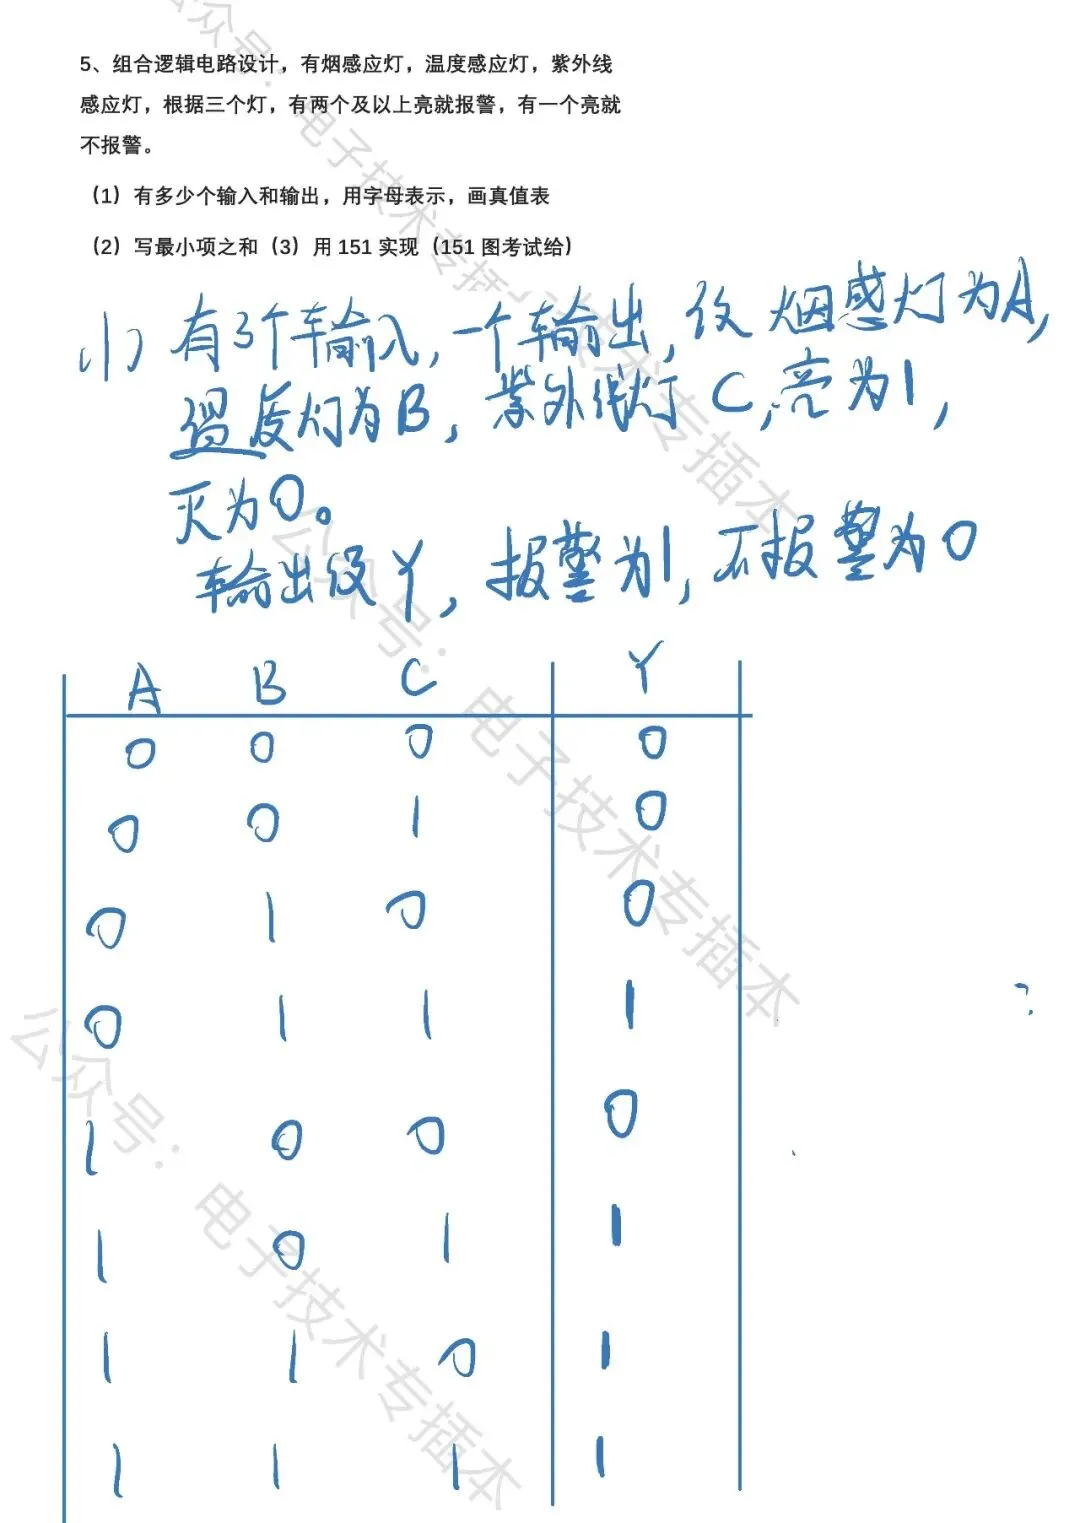 5、组合逻辑电路设计，有烟感应灯，温度感应灯，紫外线
感应灯，根据三个灯，有两个及以上亮就报警，有一个亮就
不报警。
（1）有多少个输入和输出，用字母表示，画真值表
（2）写最小项之和（3）用 151 实现（151 图考试给）
(1) 有3个输入，一个输出，设烟感灯为A，
温度灯为B，紫外线灯C，亮为1，
灭为0。
输出设Y，报警为1，不报警为0
A B C Y
0 0 0 0
0 0 1 0
0 1 0 0
0 1 1 1
1 0 0 0
1 0 1 1
1 1 0 1
1 1 1 1
公众号：电子技术专插本
公众号：电子技术专插本
公众号：电子技术专插本
技术专插本